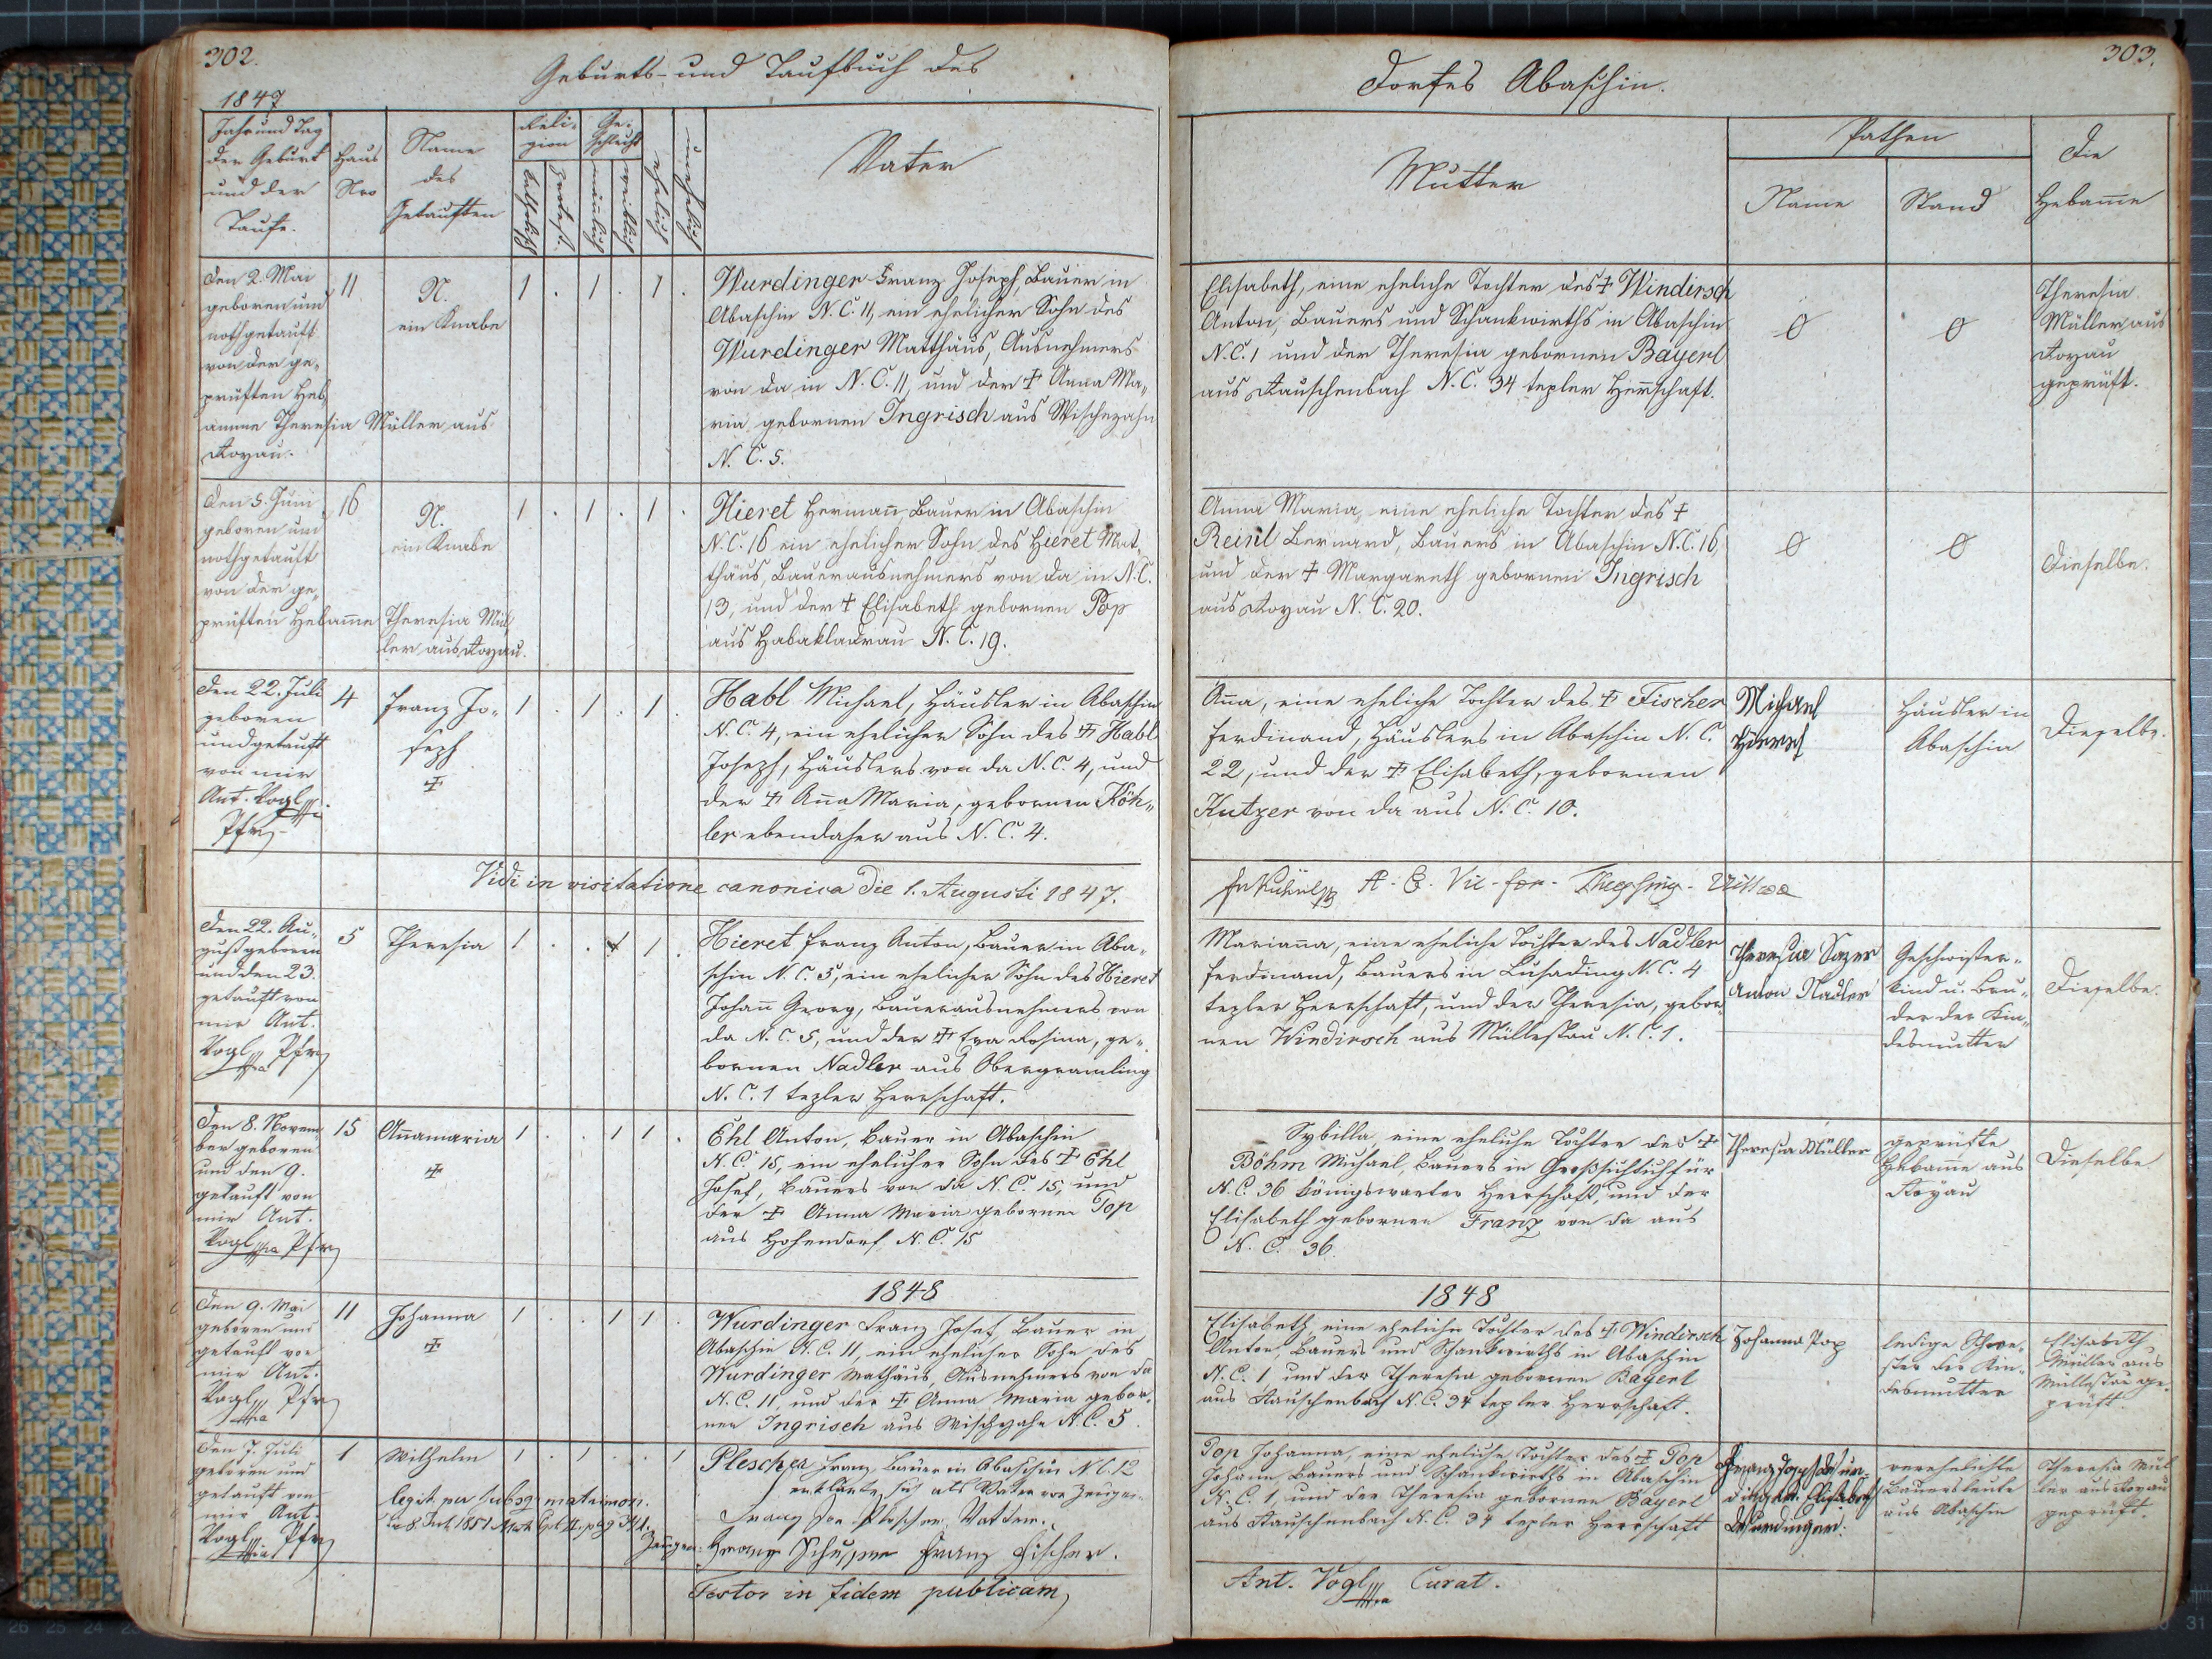 302.
Geburts- und Taufbuch des
1847
Jahr und Tag
der Geburt
und der
Taufe.
Haus
Nro
Name
des
Getauften
Reli-
gion
Ge-
schlecht
katholisch
männlich
weiblich
ehelich
unehelich
Vater
den 2. Mai
geboren und
nothgetauft
von der ge„
prüften Heb„
amme Theresia Müller aus
Royau.
11
N.
ein Knabe
1 . 1 . 1 .
Wurdinger Franz Joseph, Bauer in
Abaschin N.C. 11, ein ehelicher Sohn des
Wurdinger Matthäus, Ausnehmers
von da in N.C. 11, und der ‡ Anna Ma„
ria gebornen Ingrisch aus Wischezahn
N.C. 5.
den 5. Juni
geboren und
nothgetauft
von der ge„
prüften Hebamme Theresia Mül„
ler aus Royau.
16
N.
ein Knabe
1 . 1 . 1 .
Hieret Hermann Bauer in Abaschin
N.C. 16 ein ehelicher Sohn des Hieret Mat„
thäus, Bauerausnehmers von da in N.C.
13, und der ‡ Elisabeth gebornen Pop
aus Habakladrau N.C. 19.
den 22. Juli
geboren
und getauft
von mir
Ant. Vogl
Pfr
4
Franz Jo„
seph
‡
1 . 1 . 1 .
Habl Michael, Häusler in Abaschin
N.C. 4, ein ehelicher Sohn des ‡ Habl
Joseph, Häuslers von da N.C. 4, und
der ‡ Anna Maria, gebornen Köh„
ler ebendaher aus N.C. 4.
Vidi in visitatione canonica die 1. Augusti 1847.
den 22. Au„
gust geboren
und den 23.
getauft von
mir Ant.
Vogl Pfr
5
Theresia
1 . . 1 1 .
Hieret Franz Anton, Bauer in Aba„
schin N.C. 5, ein ehelicher Sohn des Hieret
Johann Georg, Bauerausnehmers von
da N.C. 5, und der ‡ Eva Rosina, ge„
bornen Nadler aus Obergramling
N.C. 1 tepler Herrschaft.
den 8. Novem„
ber geboren
und den 9.
getauft von
mir Ant.
Vogl Pfr
15
Annamaria
‡
1 . . 1 1 .
Ehl Anton, Bauer in Abaschin
N.C. 15, ein ehelicher Sohn des ‡ Ehl
Josef, Bauers von da N.C. 15, und
der ‡ Anna Maria gebornen Pop
aus Hohendorf N.C. 15
1848
den 9. Mai
geboren und
getauft von
mir Ant.
Vogl Pfr
11
Johanna
‡
1 . . 1 1 .
Wurdinger Franz Josef, Bauer in
Abaschin N.C. 11, ein ehelicher Sohn des
Wurdinger Mathäus, Ausnehmers von da
N.C. 11, und der ‡ Anna Maria gebor„
nen Ingrisch aus Wischezahn N.C. 5.
den 7. Juli
geboren und
getauft von
mir Ant.
Vogl Pfr
1
Wilhelm
1 . 1 . . 1
legit. per subsq. matrimon.
8. Juli 1851
Plescher Franz Bauer in Abaschin N.C. 12
erklärte sich als Vater vor Zeugen
Franz Plescher Vatter.
Zeugen: Franz Franz Fischer.
Testor in fidem publicam,
303.
Dorfes Abaschin.
Mutter
Pathen
Name
Stand
Die
Hebamme
Elisabeth, eine eheliche Tochter des ‡ Windirsch
Anton, Bauers und Schankwirths in Abaschin
N.C. 1 und der Theresia gebornen Bayerl
aus Rauschenbach N.C. 34 tepler Herrschaft.
Theresia
Müller aus
Royau
geprüft.
Anna Maria, eine eheliche Tochter des ‡
Reinl Bernard, Bauers in Abaschin N.C. 16,
und der ‡ Margareth gebornen Ingrisch
aus Royau N.C. 20.
Dieselbe.
Anna, eine eheliche Tochter des ‡ Fischer
Ferdinand, Häuslers in Abaschin N.C.
22, und der ‡ Elisabeth, gebornen
Kutzer von da aus N.C. 10.
Michael
Häusler in
Abaschin
Dieselbe.
Marianna, eine eheliche Tochter des Nadler
Ferdinand, Bauers in Lusading N.C. 4
tepler Herrschaft, und der Theresia, gebor„
nen Windirsch aus Müllestau N.C. 1.
Theresia
Anton Nadler
Geschwister„
kind u. Bru„
der der Kin„
desmutter
Dieselbe.
Sybilla eine eheliche Tochter des ‡
Böhm Michael, Bauers in Großsichdichfür
N.C. 36 königswarter Herrschaft, und der
Elisabeth gebornen Franz von da aus
N.C. 36.
Theresia Müller
geprüfte
Hebamme aus
Royau
Dieselbe
1848
Elisabeth eine eheliche Tochter des ‡ Windirsch
Anton, Bauers und Schankwirths in Abaschin
N.C. 1 und der Theresia gebornen Bayerl
aus Rauschenbach N.C. 34 tepler Herrschaft.
Johanna Pop
ledige Schwe„
ster der Kin„
desmutter
Elisabeth
Müller aus
Müllestau ge„
prüft.
Pop Johanna, eine eheliche Tochter des ‡ Pop
Johann, Bauers und Schankwirths in Abaschin
N.C. 1, und der Theresia gebornen Bayerl
aus Rauschenbach N.C. 34 tepler Herrschaft
Franz Josef Wur„
dinger Elisabeth
Wurdinger.
verehelichte
Bauersleute
aus Abaschin
Theresia Mül„
ler aus Royau
geprüft.
Ant. Vogl Curat.